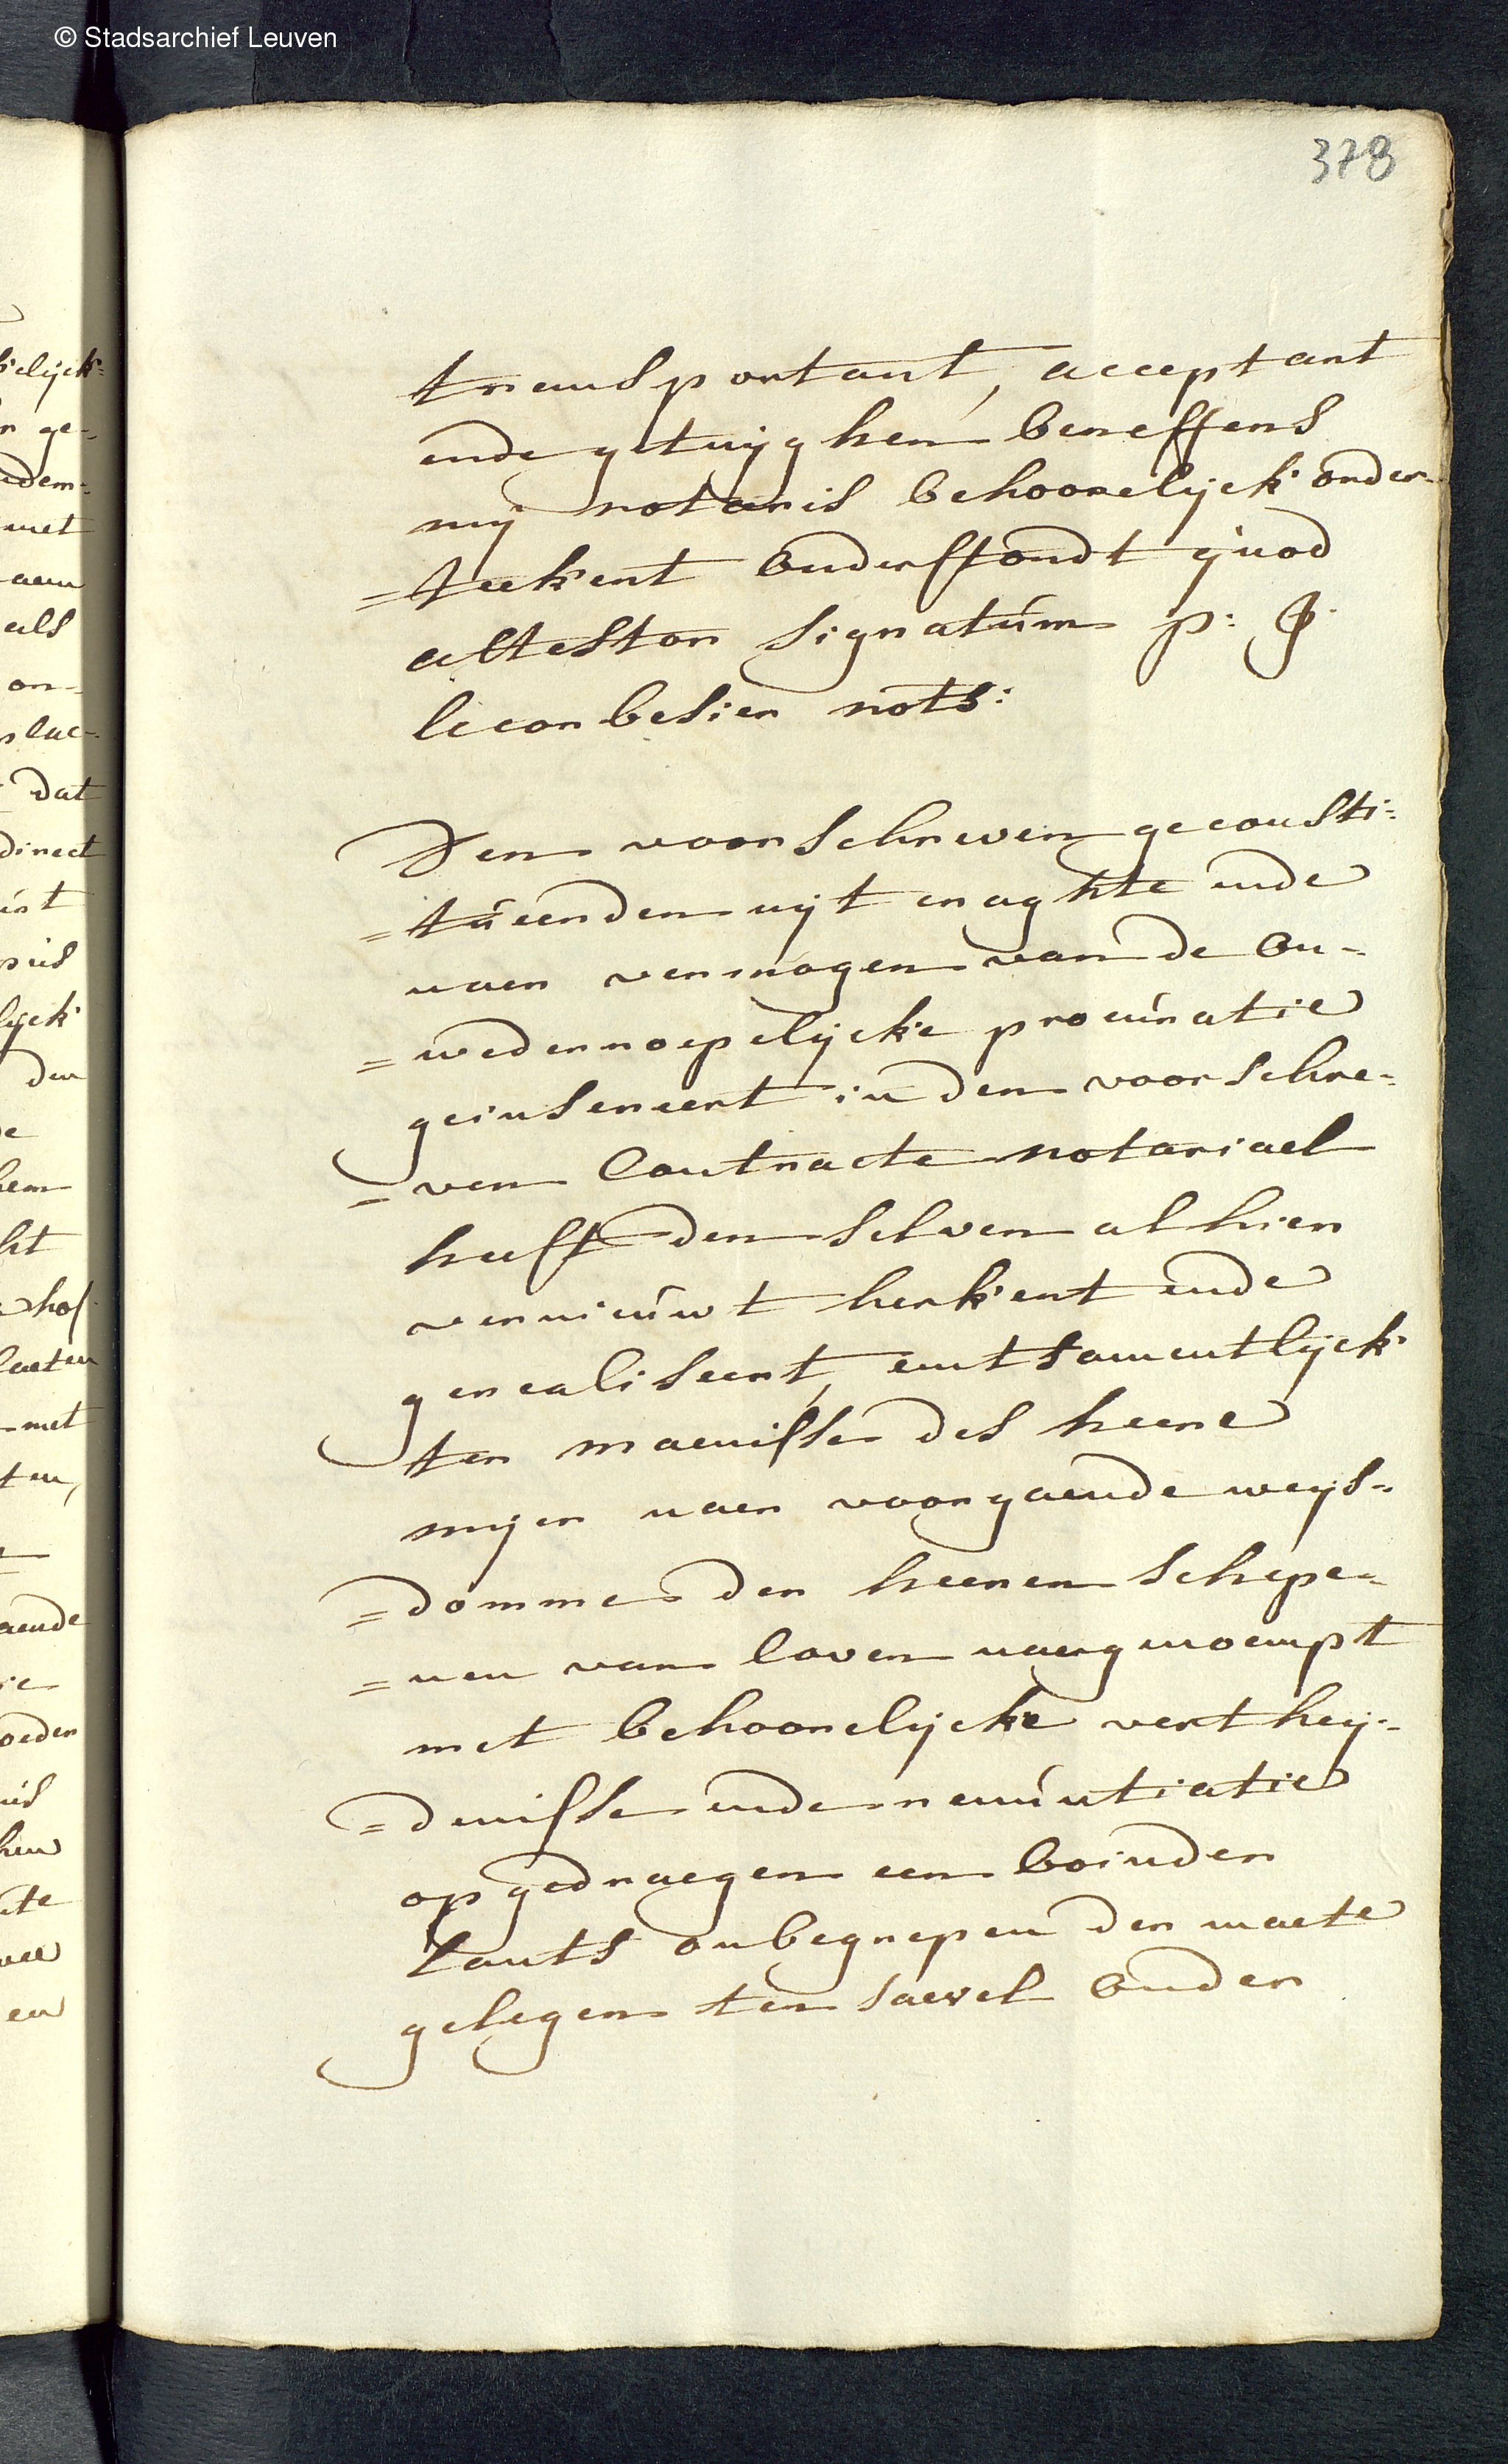 © Stadsarchief Leuven
378
transportant, acceptant
ende getuyghen beneffens
my notaris behoorelyck onder-
=teekent onderstondt quod
attestor signatúm p: J:
lecorbesier nots:
Den voorschreven geconsti=
=túeerden uyt craghte ende
naer vermogen van de on=
=wederroepelycke procúratie
geinsereert in den voorschre=
=ven Contracte notariael
heeft den selven alhier
vernieúwt herkent ende
gerealiseert, emtsamentlyck
ter manisse des heere
myer naer voorgaende wys=
=domme der heeren schepe=
=nen van loven naergenoempt
met behoorelycke verthey=
=denisse ende renúntiatie
opgedraegen een boinder
Lants onbegrepen der maete
gelegen ten saevel onder
elyck=
ge-
edem=
met
aen
als
on-
plac-
dat
direct
lyck
den
hem
hof
laeten
met
aende
oeder